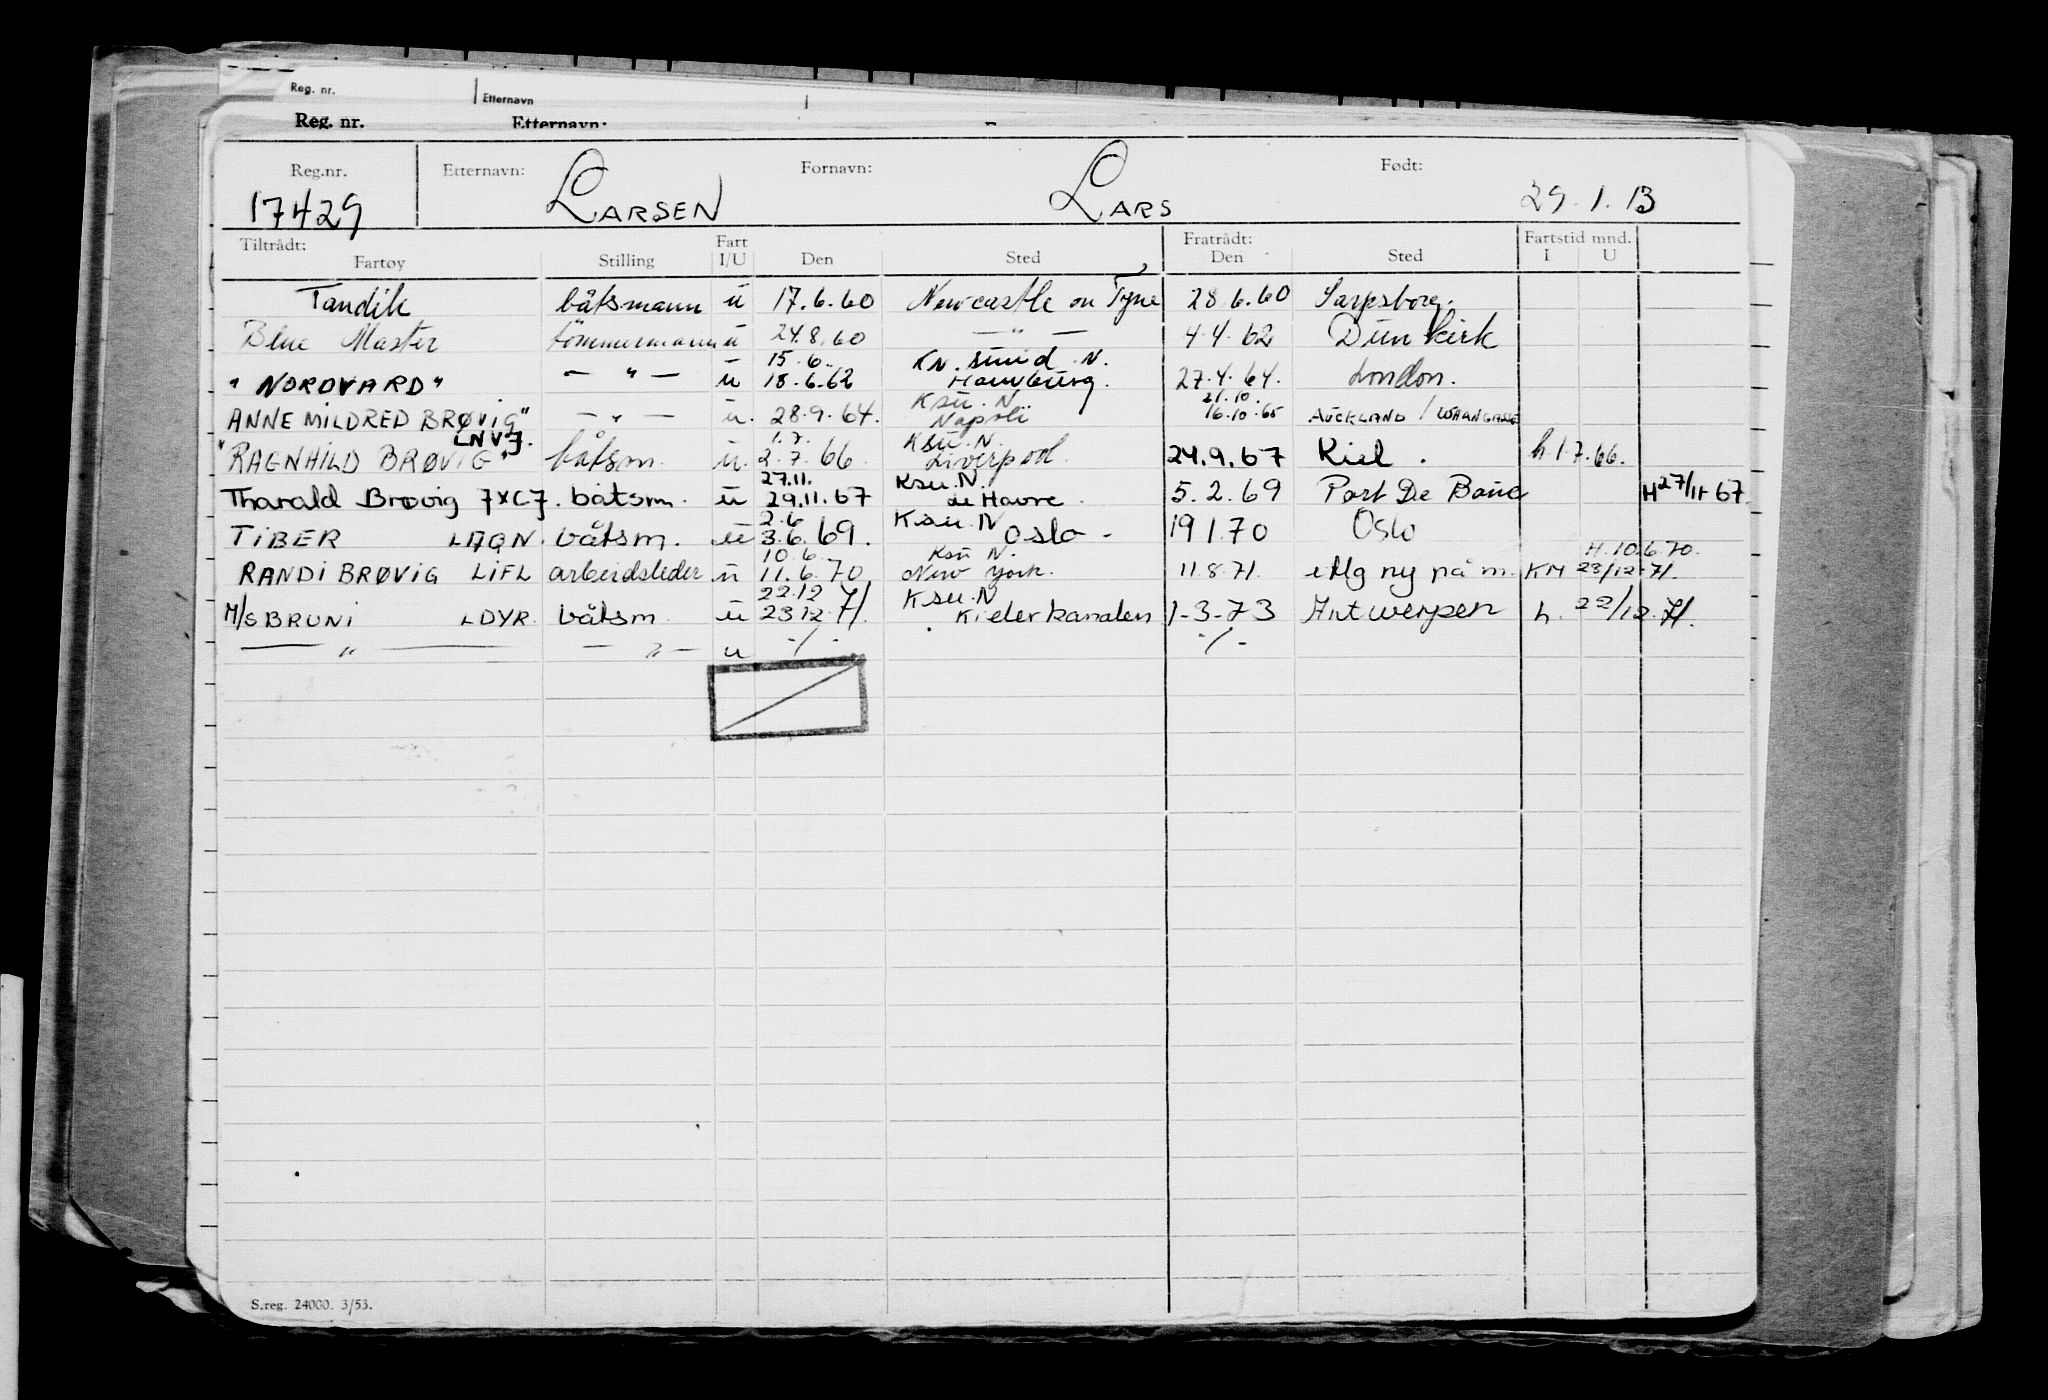 Reg. nr. Etternavn
Reg. nr. Etternavn:
Reg.nr. Etternavn: Fornavn: Født:
17429 LARSEN LARS 29.1.13
Tiltrådt: Fart Fratrådt: Fartstid mnd.
Fartøy Stilling I/U Den Sted Den Sted I U
Tandik båtsmann u 17.6.60 Newcastle on Tyne 28.6.60 Sarpsborg.
Blue Master tömmermann u 24.8.60 — " — 4.4.62 Dunkirk
15.6. KN. sund N.
"NORDVARD" — " — u 18.6.62 Hamburg. 27.4.64. London.
Ksu. N 21.10.
ANNE MILDRED BRØVIG" — " — u. 28.9.64. Napoli 16.10.65 AUCKLAND /
LNVJ. 1.7. Ksu. N.
"RAGNHILD BRØVIG" båtsm. u. 2.7.66. Liverpool. 24.9.67 Kiel. h.1.7.66.
27.11. Ksu. N.
Tharald Brøvig JXCJ. båtsm. u 29.11.67 Le Havre. 5.2.69 Port De Bouc H 27/11 67.
2.6 Ksu. N
TIBER LAQN. båtsm. u 3.6.69. Oslo - 19 1.70 Oslo
10.6. Ksu N. H.10.6.70.
RANDI BRØVIG LIFL arbeidsleder u 11.6.70 New York. 11.8.71. ny på m. KM 23/12.71.
22.12 Ksu. N
M/S BRUNI LDYR. båtsm. u 23.12.71. Kielerkanalen 1-3-73 Antwerpen h. 22/12.71.
— " — — " — u -/- -/-
S.reg. 24000. 3/53.